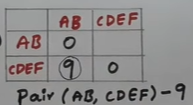 AB CDEF
AB 0
CDEF 9 0
Pair (AB, CDEF) - 9